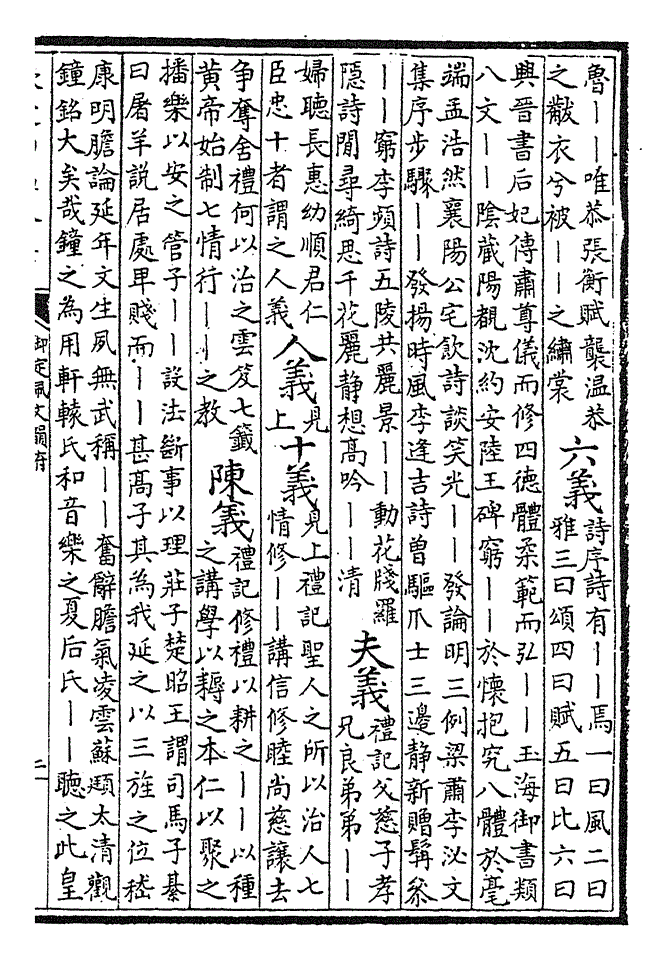 魯——唯恭張衡賦襲温恭
之黻衣兮被——之繡裳
六義
詩序詩有——焉一曰風二曰
雅三曰頌四曰賦五曰比六曰
興晉書后妃傳肅尊儀而修四德體柔範而弘——玉海御書類
八文——陰藏陽覩沈約安陸王碑窮——於懷抱究八體於毫
端孟浩然襄陽公宅飲詩談笑光——發論明三例梁肅李泌文
集序步驟——發揚時風李逢吉詩曽驅爪士三邊静新贈髯叅
——窮李頻詩五陵共麗景——動花牋羅
隠詩閒尋綺思千花麗静想髙吟——清
夫義
禮記父慈子孝
兄良弟弟——
婦聽長惠幼順君仁
臣忠十者謂之人義
人義
見
上
十義
見上禮記聖人之所以治人七
情修——講信修睦尚慈讓去
争奪舍禮何以治之雲笈七籤
黄帝始制七情行——之教
陳義
禮記修禮以耕之——以種
之講學以耨之本仁以聚之
播樂以安之管子——設法斷事以理莊子楚昭王謂司馬子綦
曰屠羊説居處卑賤而——甚髙子其為我延之以三旌之位嵇
康明膽論延年文生夙無武稱——奮辭膽氣凌雲蘇頲太清觀
鐘銘大矣哉鐘之為用軒轅氏和音樂之夏后氏——聽之此皇
御定佩文韻府
二